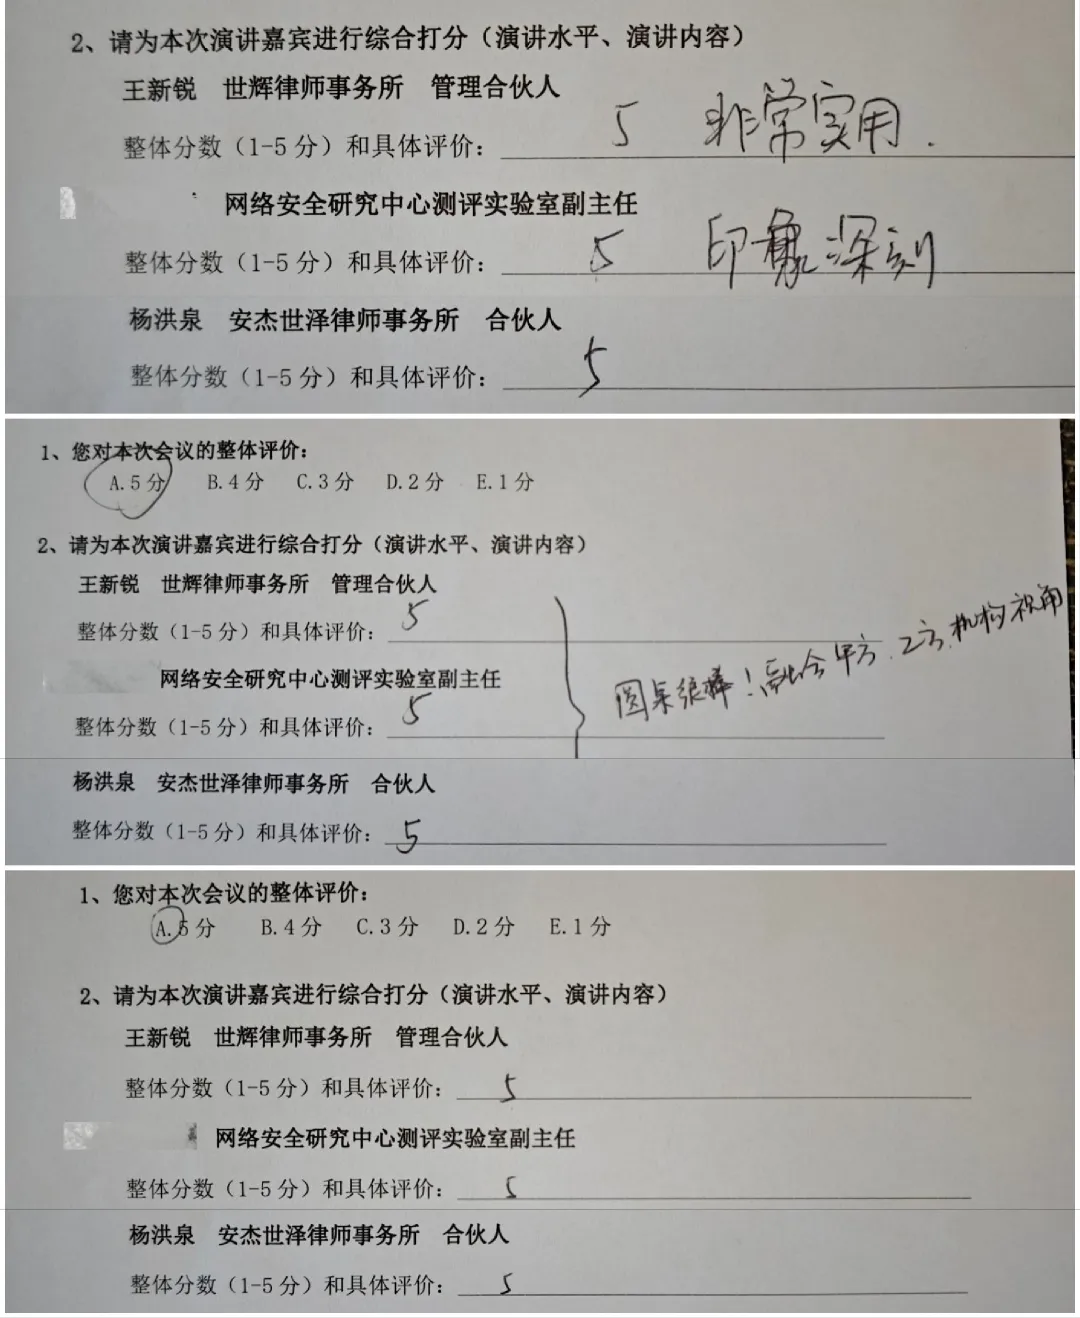 2、请为本次演讲嘉宾进行综合打分（演讲水平、演讲内容）
王新锐 世辉律师事务所 管理合伙人
整体分数（1-5分）和具体评价： 5 非常实用.
网络安全研究中心测评实验室副主任
整体分数（1-5分）和具体评价： 5 印象深刻
杨洪泉 安杰世泽律师事务所 合伙人
整体分数（1-5分）和具体评价： 5
1、您对本次会议的整体评价：
A.5分 B.4分 C.3分 D.2分 E.1分
2、请为本次演讲嘉宾进行综合打分（演讲水平、演讲内容）
王新锐 世辉律师事务所 管理合伙人
整体分数（1-5分）和具体评价： 5
圆桌很棒！融合甲方、乙方、机构视角
网络安全研究中心测评实验室副主任
整体分数（1-5分）和具体评价： 5
杨洪泉 安杰世泽律师事务所 合伙人
整体分数（1-5分）和具体评价： 5
1、您对本次会议的整体评价：
A.5分 B.4分 C.3分 D.2分 E.1分
2、请为本次演讲嘉宾进行综合打分（演讲水平、演讲内容）
王新锐 世辉律师事务所 管理合伙人
整体分数（1-5分）和具体评价： 5
网络安全研究中心测评实验室副主任
整体分数（1-5分）和具体评价： 5
杨洪泉 安杰世泽律师事务所 合伙人
整体分数（1-5分）和具体评价： 5